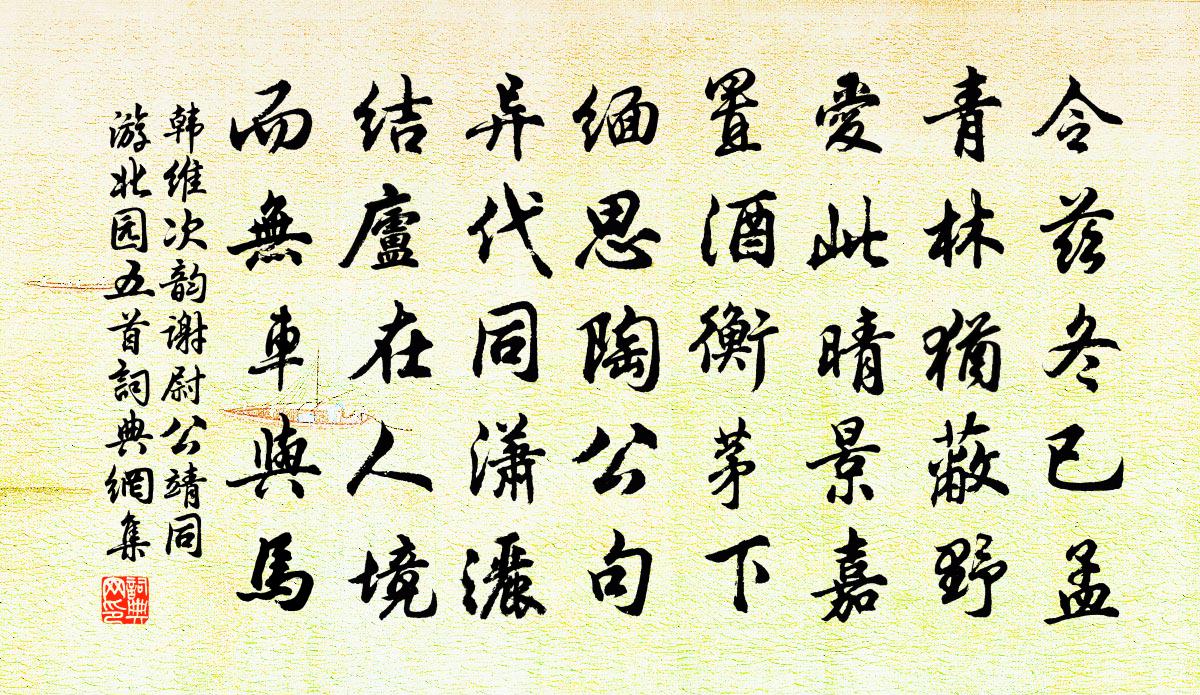 令兹冬已孟
青林犹蔽野
愛此晴景嘉
置酒衡茅下
缅思陶公句
异代同潇灑
结廬在人境
而無車與馬
韩维次韵谢尉公靖同
游北园五首詞典網集
詞典网印